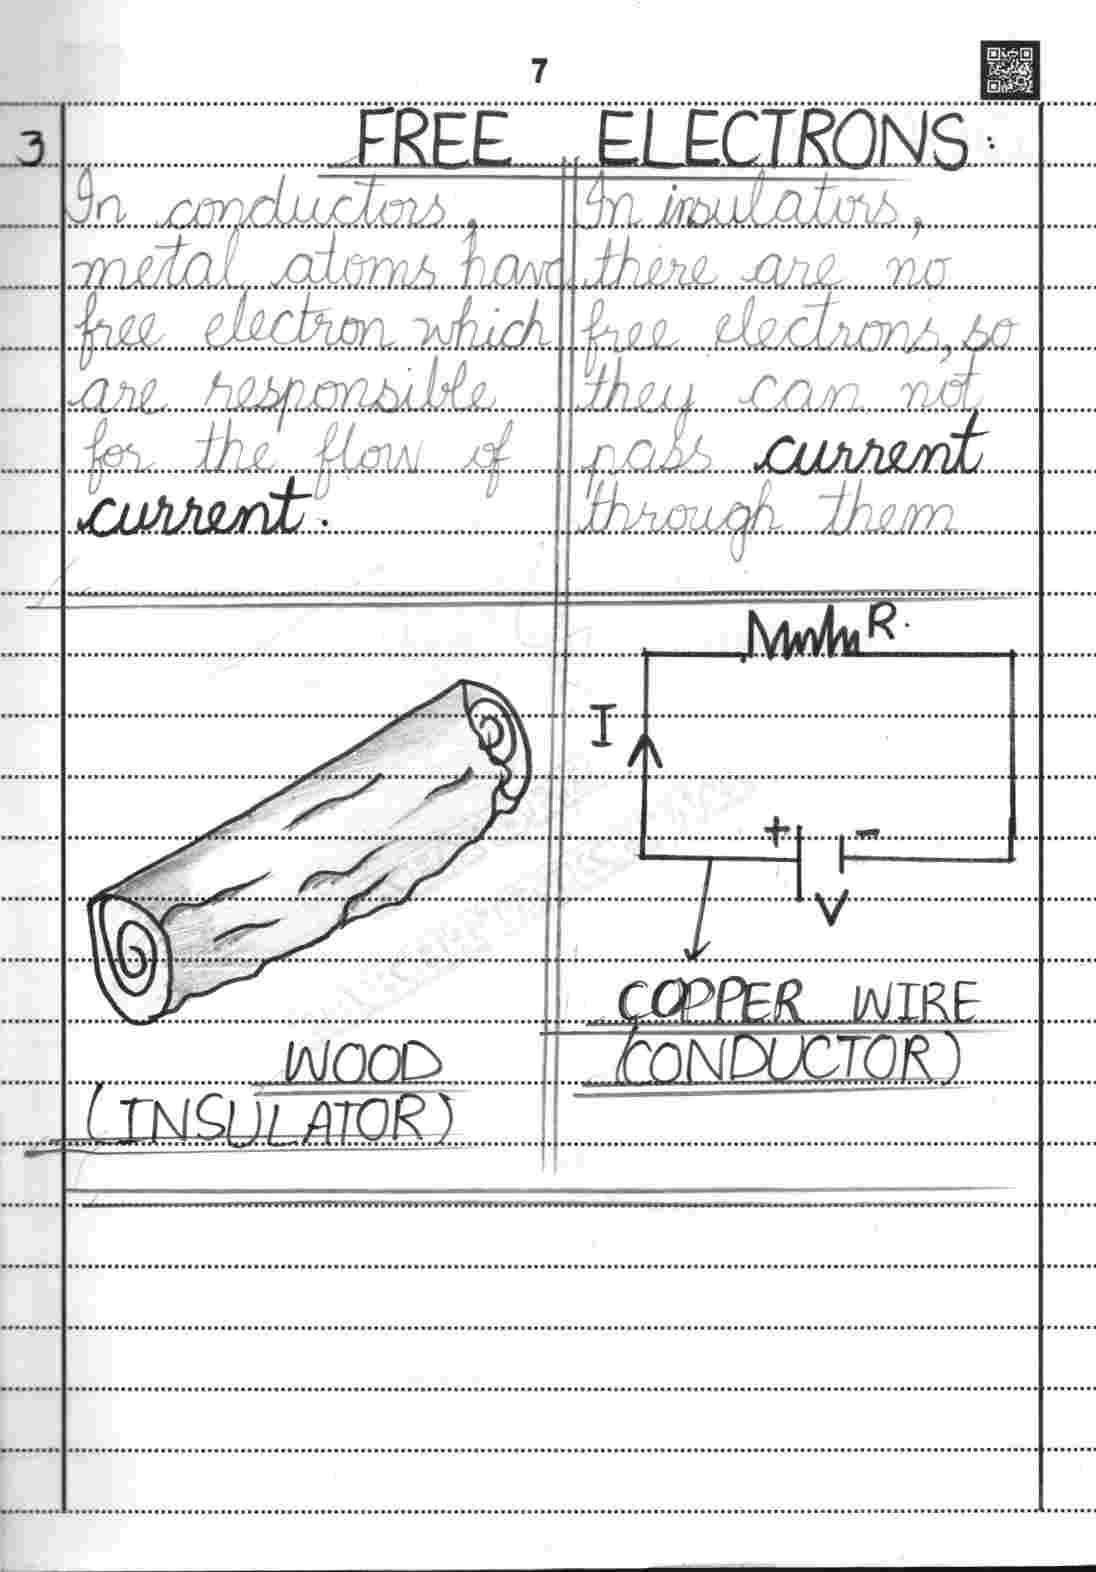 7
3
FREE ELECTRONS:
In conductors,
metal atoms have
free electron which
are responsible
for the flow of
current.
In insulators,
there are no
free electrons, so
they can not
pass current
through them
R.
I
+ -
V
COPPER WIRE
(CONDUCTOR)
WOOD
(INSULATOR)